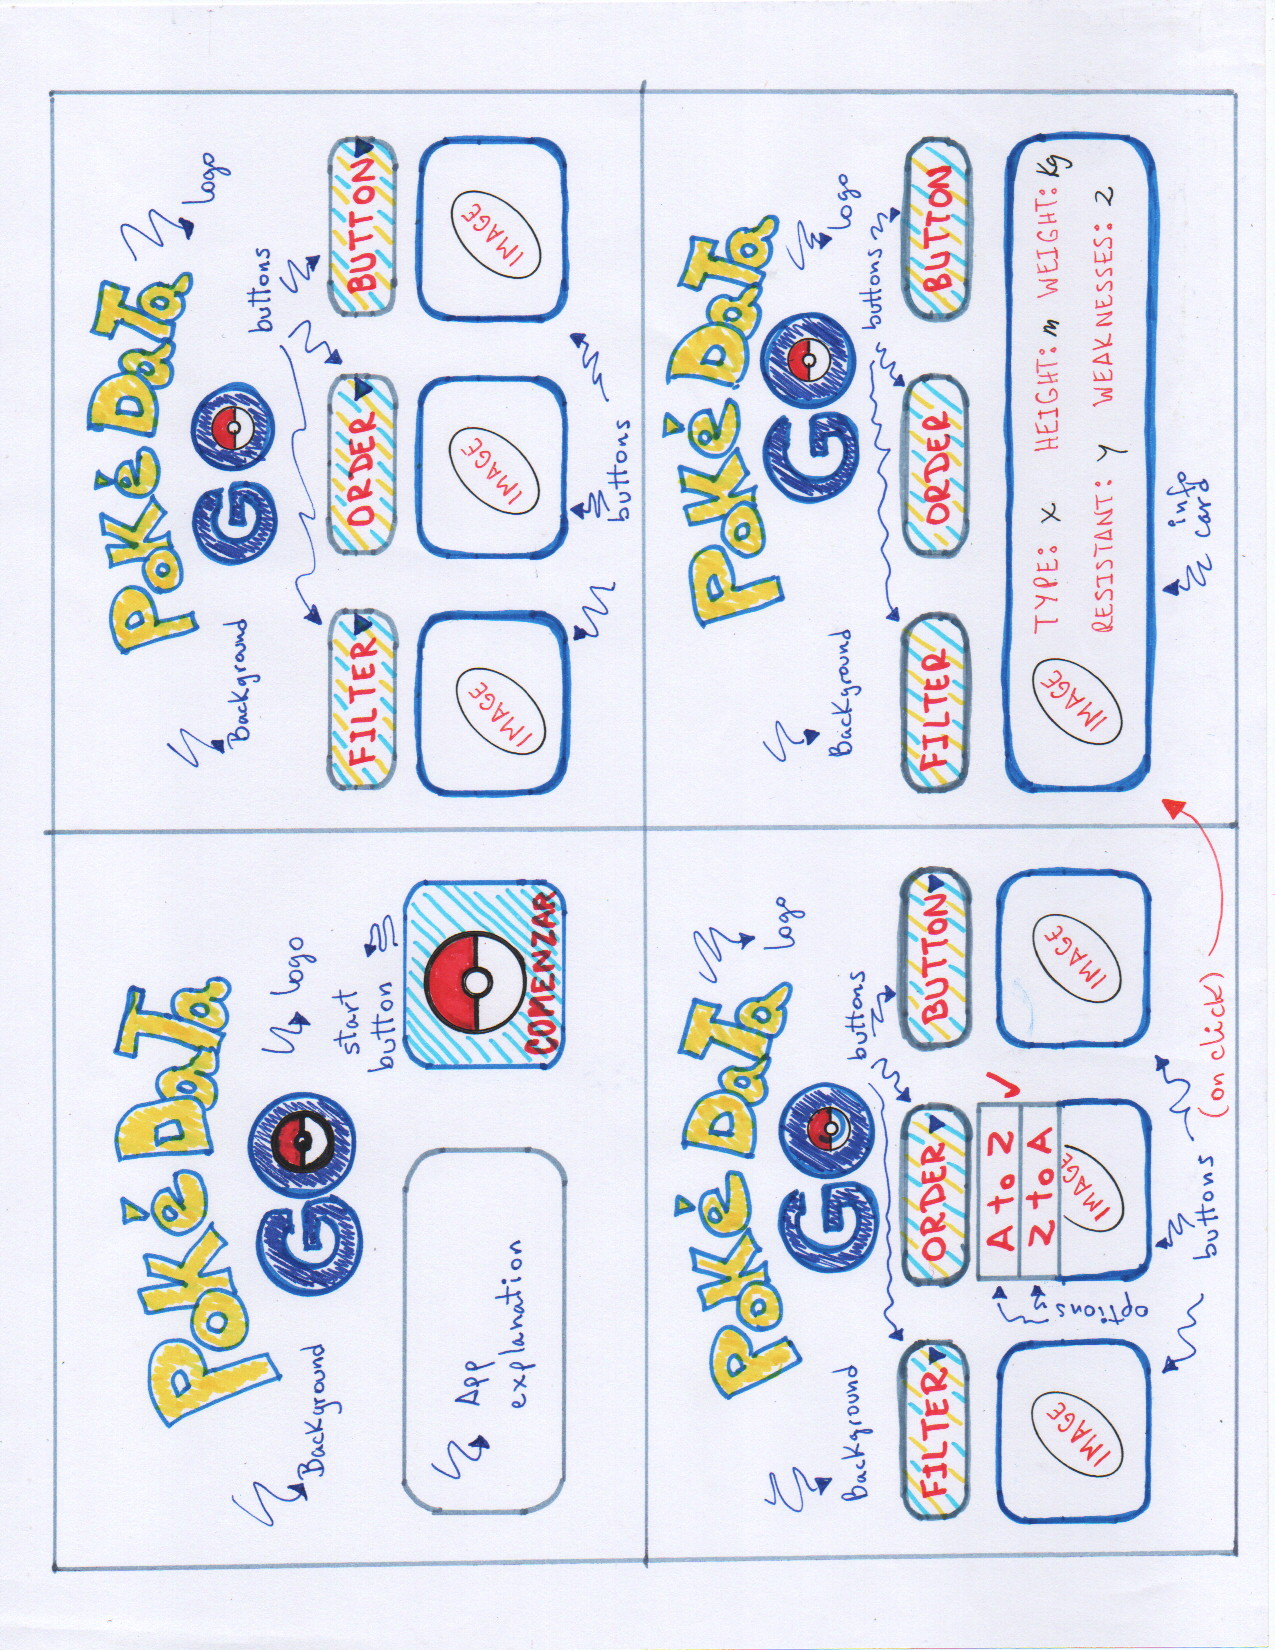 POKÉ DATA
GO
Background
logo
start
button
App
explanation
COMENZAR
POKÉ DATA
GO
logo
Background
buttons
FILTER
ORDER
BUTTON
IMAGE
IMAGE
IMAGE
buttons
POKÉ DATA
GO
logo
Background
buttons
FILTER
ORDER
BUTTON
A to Z
Z to A
options
IMAGE
IMAGE
IMAGE
buttons
(on click)
POKÉ DATA
GO
Background
logo
buttons
FILTER
ORDER
BUTTON
IMAGE
TYPE: x HEIGHT: m WEIGHT: Kg
RESISTANT: y WEAKNESSES: z
info
card